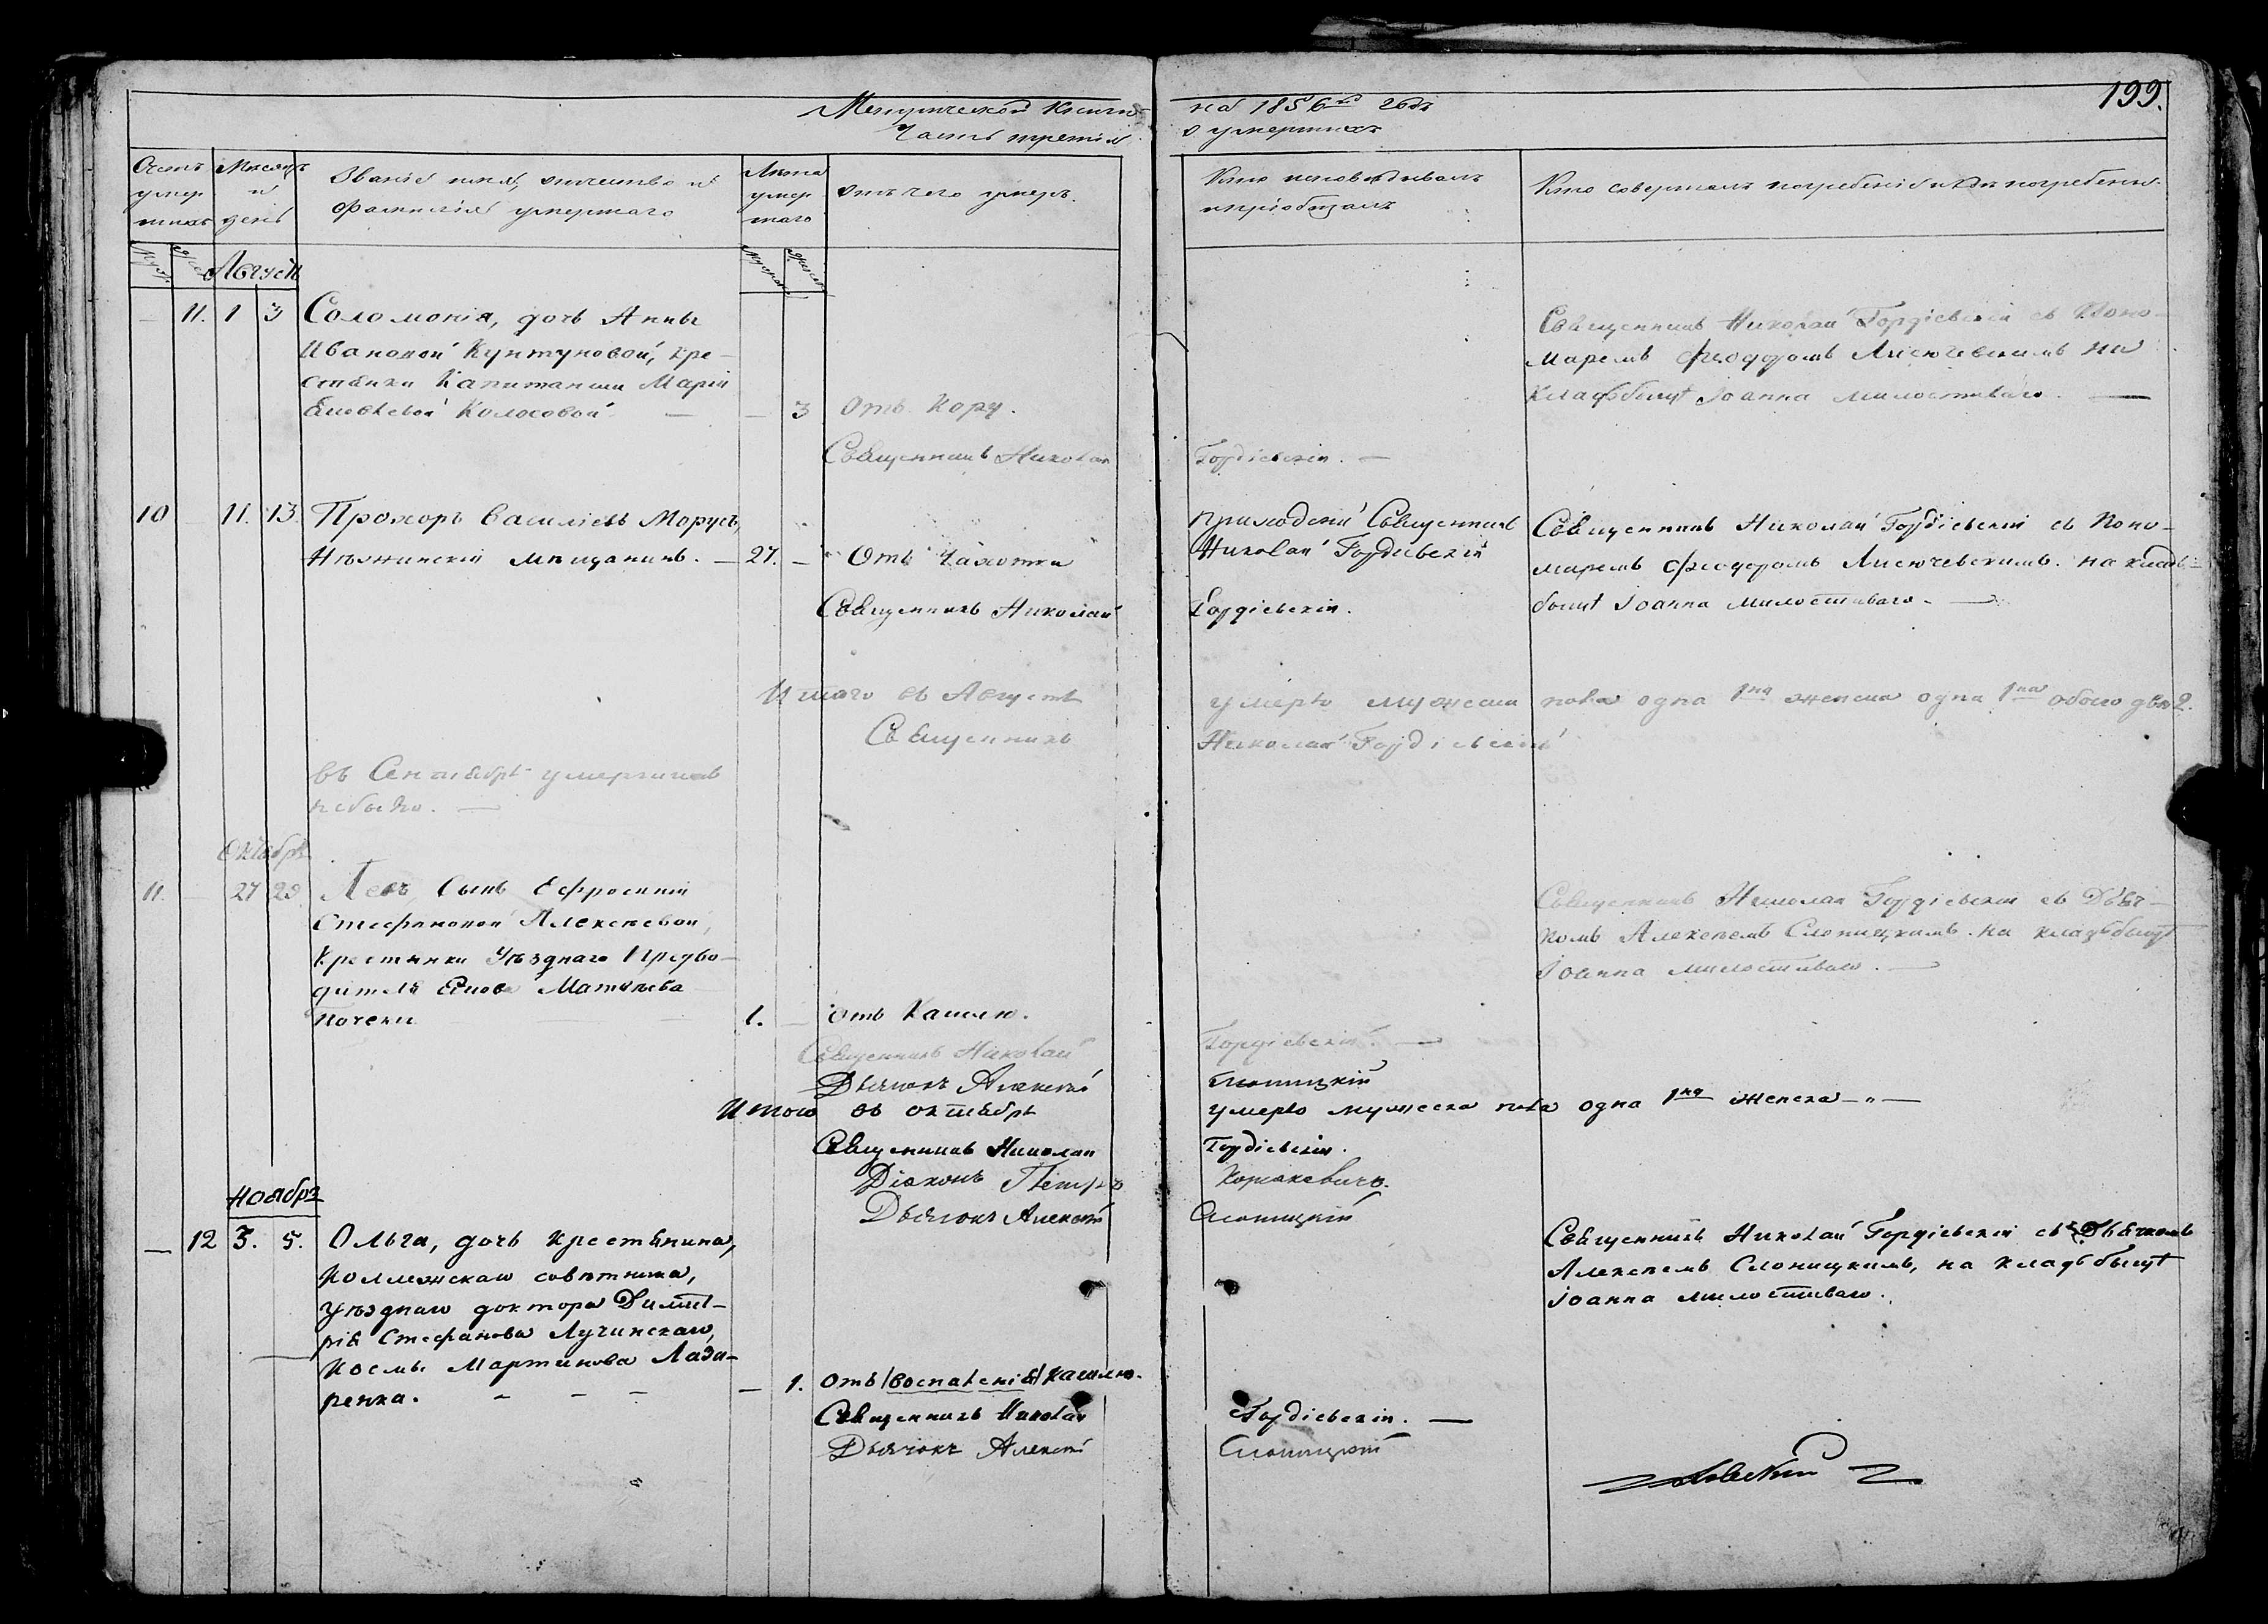 Метрической книги на 1856й годъ
199.
Часть третія о умершихъ
Счетъ умершихъ
Мѣсяцъ и день
Званіе имя, отчество и фамилія умершаго
Лѣта умершаго
отъ чего умеръ.
Кто исповѣдывалъ и пріобщалъ
Кто совершалъ погребеніе и гдѣ погребены.
Августъ
11. 1 3 Соломонія, дочь Анны
Ивановой Кунтуновой, кре-
стянки Капитанши Маріи
Колосовой — — 3 Отъ Кору.
Священникъ Николай Гордіевскій с Поно-
маремъ Феодоромъ Лисючевскимъ на
кладбищѣ Іоанна милостиваго. —
Священникъ Николай Гордіевскій. —
10 11. 13. Прохоръ Василіевъ Морусъ,
Нѣжинскій мѣщанинъ. — 27. — Отъ Чахотки
приходскій Священникъ
Николай Гордіевскій
Священникъ Николай Гордіевскій съ Поно-
маремъ Феодоромъ Лисючевскимъ. на клад-
бищѣ Іоанна милостиваго. —
Священникъ Николай Гордіевскій.
Итого въ Августѣ умерло мужеска пола одна 1на женска одна 1на обоего двѣ 2.
Священникъ Николай Гордіевскій
въ Сентябрѣ умершихъ
небыло. —
Октябрь
11. — 27 29 Левъ, Сынъ Ефросиніи
Стефановой Алексѣевой,
Крестянки Уѣзднаго Предво-
дителя Матвѣева
Почеки 1. — отъ Кашлю.
Священникъ Николай Гордіевскій съ Дьяч-
комъ Алексѣемъ Слоницкимъ. на кладбищѣ
Іоанна милостиваго. —
Священникъ Николай Гордіевскій. —
Дьячокъ Алексѣй Слоницкій
Итого въ октябрѣ умерло мужеска пола одна 1на женска — „ —
Священникъ Николай Гордіевскій.
Діаконъ Петръ
Дьячокъ Алексѣй Слоницкій
Ноябрь
— 12 3. 5. Ольга, дочь крестянина,
Коллежскаго совѣтника,
уѣзднаго доктора Димит-
рія Стефанова Лучинскаго,
Космы Мартинова Лаза-
ренка. — — — — 1. отъ /воспаленія/ кашлю.
Священникъ Николай Гордіевскій съ Дьячкомъ
Алексѣемъ Слоницкимъ, на кладбищѣ
Іоанна милостиваго.
Священникъ Николай Гордіевскій. —
Дьячокъ Алексѣй Слоницкій